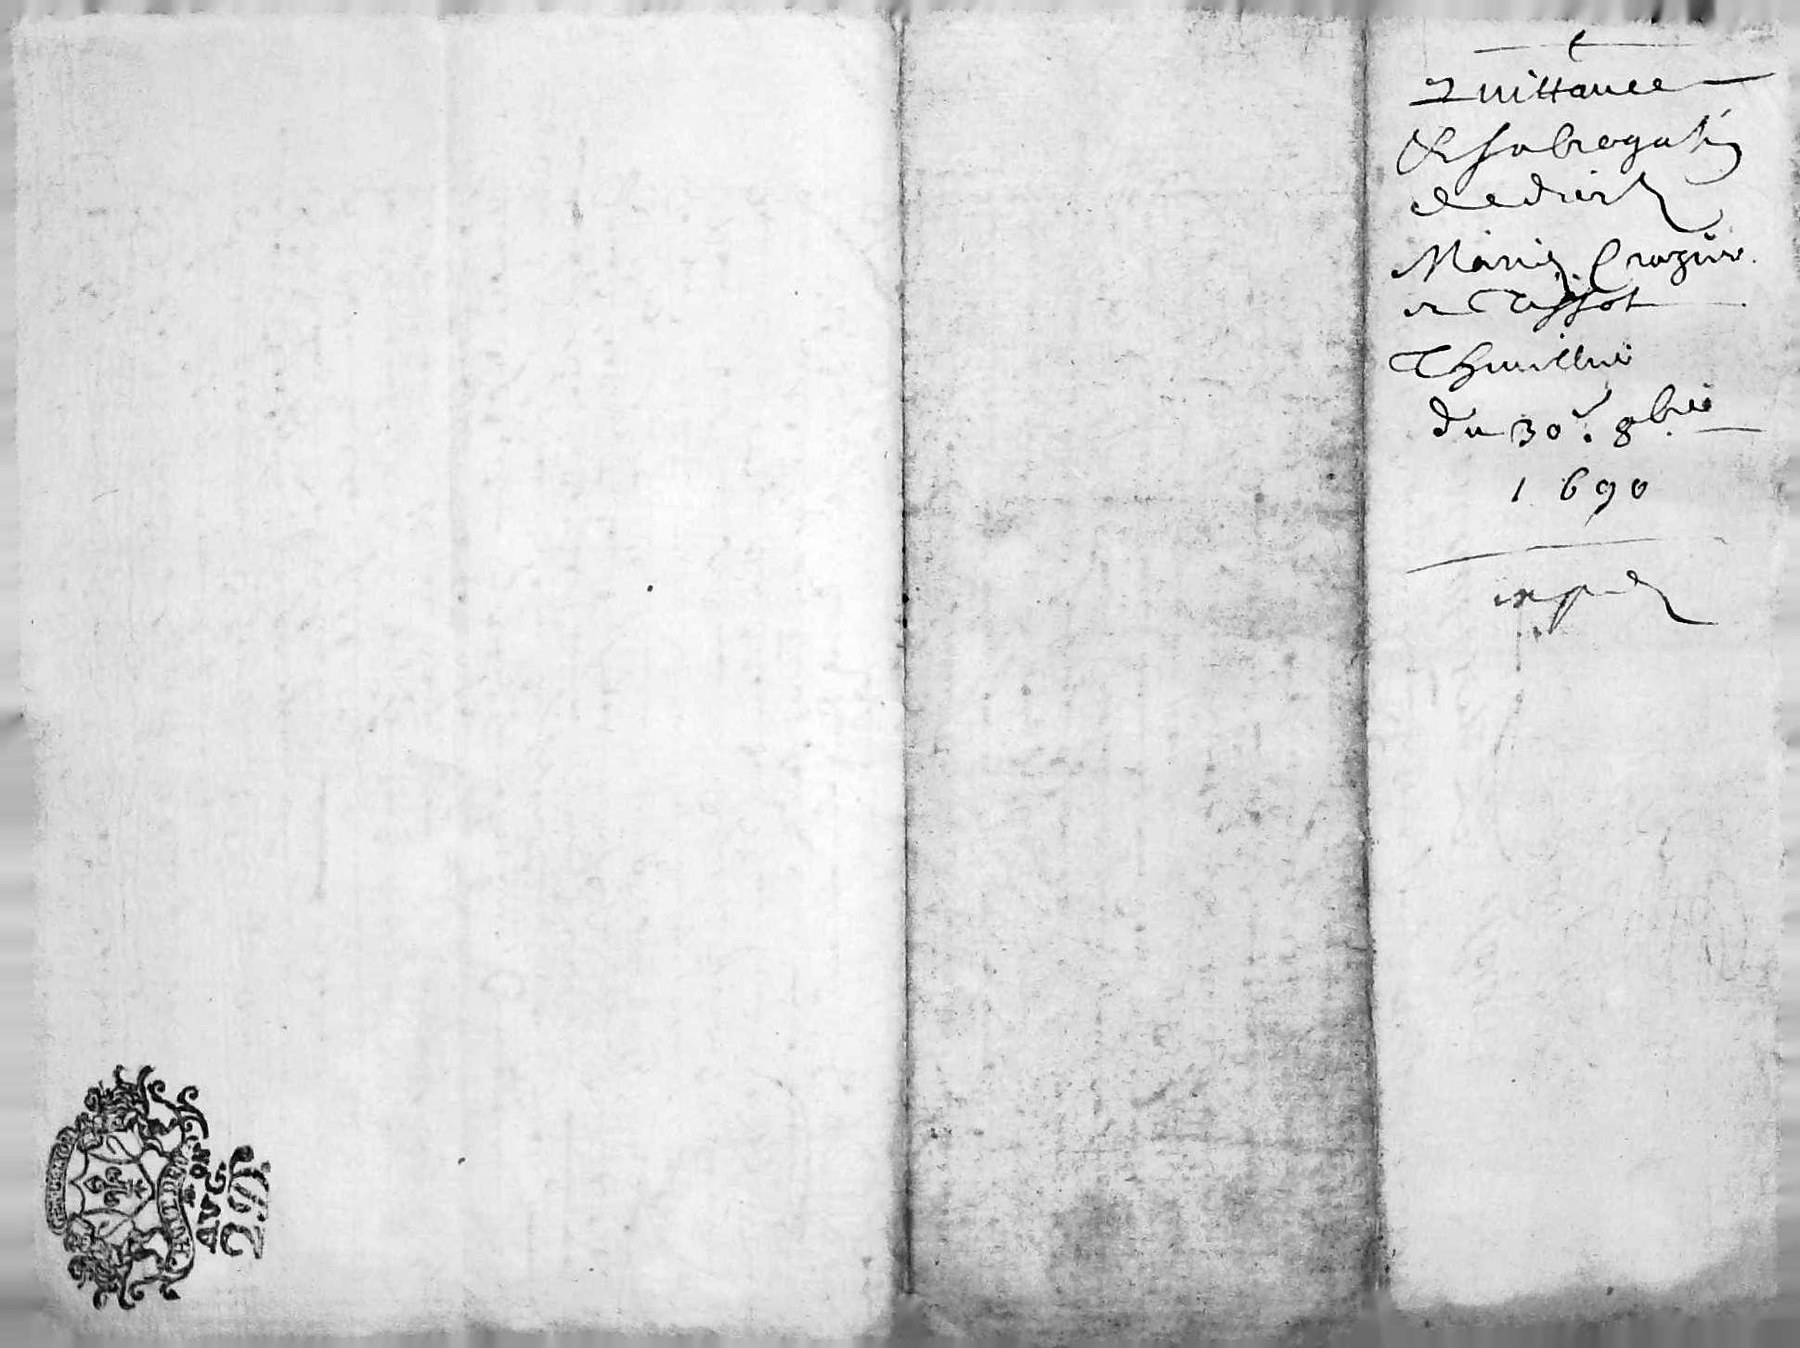 Quittance
& subrogation
de droit
Marie Crozier
et Tissot
Thuillier
du 30e. 8bre
1690
exped